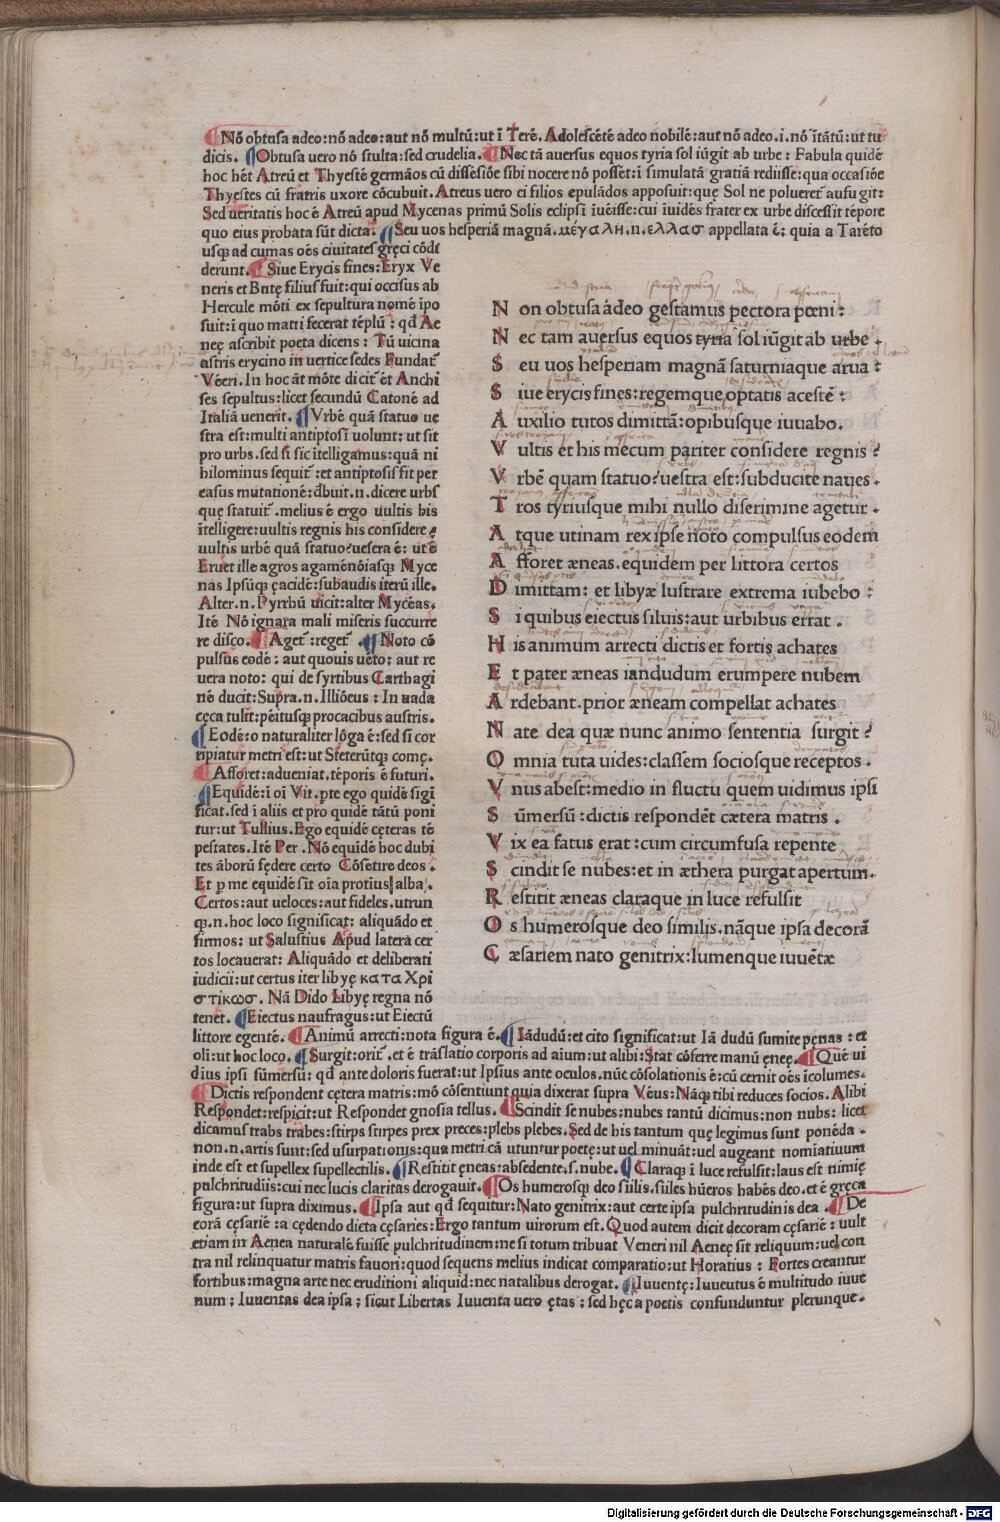 ¶Nō obtusa adeo:nō adeo:aut nō multū:ut ī Terē. Adolescētē adeo nobilē:aut nō adeo.i.nō ītātū:ut tu
dicis. ¶Obtusa uero nō stulta:sed crudelia. ¶Nec tā auersus equos tyria sol iūgit ab urbe: Fabula quidē
hoc hēt Atreū et Thyestē germāos cū dissēsiōe sibi nocere nō possēt:ī simulatā gratiā rediisse:qua occasiōe
Thyestes cū fratris uxore cōcubuit. Atreus uero ei filios epulādos apposuit:quę Sol ne polueret aufugit:
Sed ueritatis hoc ē Atreū apud Mycenas primū Solis eclipsī īuēisse:cui īuidēs frater ex urbe discessit tēpore
quo eius probata sūt dicta. ¶Seu uos hesperiā magnā.μεγαλη.n.ελλασ appellata ē: quia a Tarēto
usq; ad cumas oēs ciuitates gręci cōdī
derunt. ¶Siue Erycis fines:Eryx Ve
neris et Butę filius fuit:qui occisus ab
Hercule mōti ex sepultura nomē īpo
suit:ī quo matri fecerat tēplū: qđ Ae
neę ascribit poeta dicens: Tū uicina
astris erycino in uertice sedes Fundat̄
Vēeri. In hoc āt mōte dicit̄ ēt Anchi
ses sepultus:licet secundū Catonē ad
Italiā uenerit. ¶Vrbē quā statuo ue
stra est:multi antiptosī uolunt: ut sit
pro urbs.sed si sic ītelligamus:quā ni
hilominus sequit̄:et antiptosis fit per
casus mutationē:dbuit.n.dicere urbs
quę statuit̄.melius ē ergo uultis bis
ītelligere:uultis regnis his considere?
uultis urbē quā statuo?uesera ē: ut ē
Eruet ille agros agamēnōiasq; Myce
nas Ipsūq; ęacidē:subaudis iterū ille.
Alter.n.Pyrrhū uicit:alter Mycēas.
Itē Nō ignara mali miseris succurre
re disco. ¶Aget̄:reget̄. ¶Noto cō
pulsus eodē: aut quouis uēto: aut re
uera noto: qui de syrtibus Carthagi
nē ducit:Supra.n.Illiōeus: In uada
cęca tulit:pēitusq; procacibus austris.
¶Eodē:o naturaliter lōga ē:sed si cor
ripiatur metri est:ut Steterūtq; comę.
¶Afforet:adueniat.tēporis ē futuri.
¶Equidē:ī oī Vir.pte ego quidē sigī
ficat.sed ī aliis et pro quidē tātū poni
tur:ut Tullius.Ego equidē cęteras tē
pestates.Itē Per.Nō equidē hoc dubi
tes āborū fędere certo Cōsētire deos.
Et p me equidē sit oīa protius alba.
Certos:aut ueloces:aut fideles.utrun
q;.n.hoc loco significat: aliquādo et
firmos: ut Salustius Apud latera cer
tos locauerat: Aliquādo et deliberati
iudicii:ut certus iter libyę κατα Χρι
στικωσ. Nā Dido Libyę regna nō
tenet. ¶Eiectus naufragus:ut Eiectū
littore egentē. ¶Animū arrecti:nota figura ē. ¶Iādudū:et cito significat:ut Iā dudū sumite pęnas: et
oli:ut hoc loco. ¶Surgit:orit̄.et ē trāslatio corporis ad aīum:ut alibi:Stat cōferre manū ęneę. ¶Quē ui
dius ipsi sūmersū: qđ ante doloris fuerat:ut Ipsius ante oculos.nūc cōsolationis ē:cū cernit oēs īcolumes.
¶Dictis respondent cętera matris:mō cōsentiunt quia dixerat supra Vēus:Nāq; tibi reduces socios. Alibi
Respondet:respicit:ut Respondet gnosia tellus. ¶Scindit se nubes:nubes tantū dicimus:non nubs: licet
dicamus trabs trabes:stirps stirpes prex preces:plebs plebes. Sed de his tantum quę legimus sunt ponēda.
non.n.artis sunt:sed usurpationis:qua metri cā utuntur poetę:ut uel minuāt:uel augeant nomīatiuum
inde est et supellex supellectilis. ¶Restitit ęneas:absedente.s.nube. ¶Claraq; ī luce refulsit:laus est nimię
pulchritudīis:cui nec lucis claritas derogauit. ¶Os humerosq; deo sīilis.sīiles hūeros habēs deo.et ē gręca
figura:ut supra diximus. ¶Ipsa aut qđ sequitur:Nato genitrix:aut certe ipsa pulchritudinis dea. ¶De
corā cęsariē:a cędendo dicta cęsaries:Ergo tantum uirorum est. Quod autem dicit decoram cęsariē: uult
etiam in Aenea naturalē fuisse pulchritudinem:ne si totum tribuat Veneri nil Aeneę sit reliquum:uel con
tra nil relinquatur matris fauori:quod sequens melius indicat comparatio:ut Horatius: Fortes creantur
fortibus:magna arte nec eruditioni aliquid:nec natalibus derogat. ¶Iuuentę:Iuueutus ē multitudo iuue
num: Iuuentas dea ipsa: sicut Libertas Iuuenta uero ętas: sed hęc a poetis confunduntur plerunque.
Non obtusa ádeo gestamus pectora pœni:
Nec tam auersus equos tyria sol iūgit ab urbe.
Seu uos hesperiam magnā saturniaque arua:
Siue erycis fines:regemque optatis acestē:
Auxilio tutos dimittā:opibusque iuuabo.
Vultis et his mecum pariter considere regnis?
Vrbē quam statuo?uestra est:subducite naues.
Tros tyriusque mihi nullo discrimine agetur.
Atque utinam rex ipse noto compulsus eodem
Afforet æneas.equidem per littora certos
Dimittam: et libyæ lustrare extrema iubebo:
Si quibus eiectus siluis:aut urbibus errat.
His animum arrecti dictis et fortis achates
Et pater æneas iandudum erumpere nubem
Ardebant.prior æneam compellat achates
Nate dea quæ nunc animo sententia surgit?
Omnia tuta uides:classem sociosque receptos.
Vnus abest:medio in fluctu quem uidimus ipsi
Sūmersū:dictis respondēt cætera matris.
Vix ea fatus erat:cum circumfusa repente
Scindit se nubes:et in æthera purgat apertum.
Restitit æneas claraque in luce refulsit
Os humerosque deo similis.nāque ipsa decorā
Cæsariem nato genitrix:lumenque iuuētæ
Digitalisierung gefördert durch die Deutsche Forschungsgemeinschaft - DFG